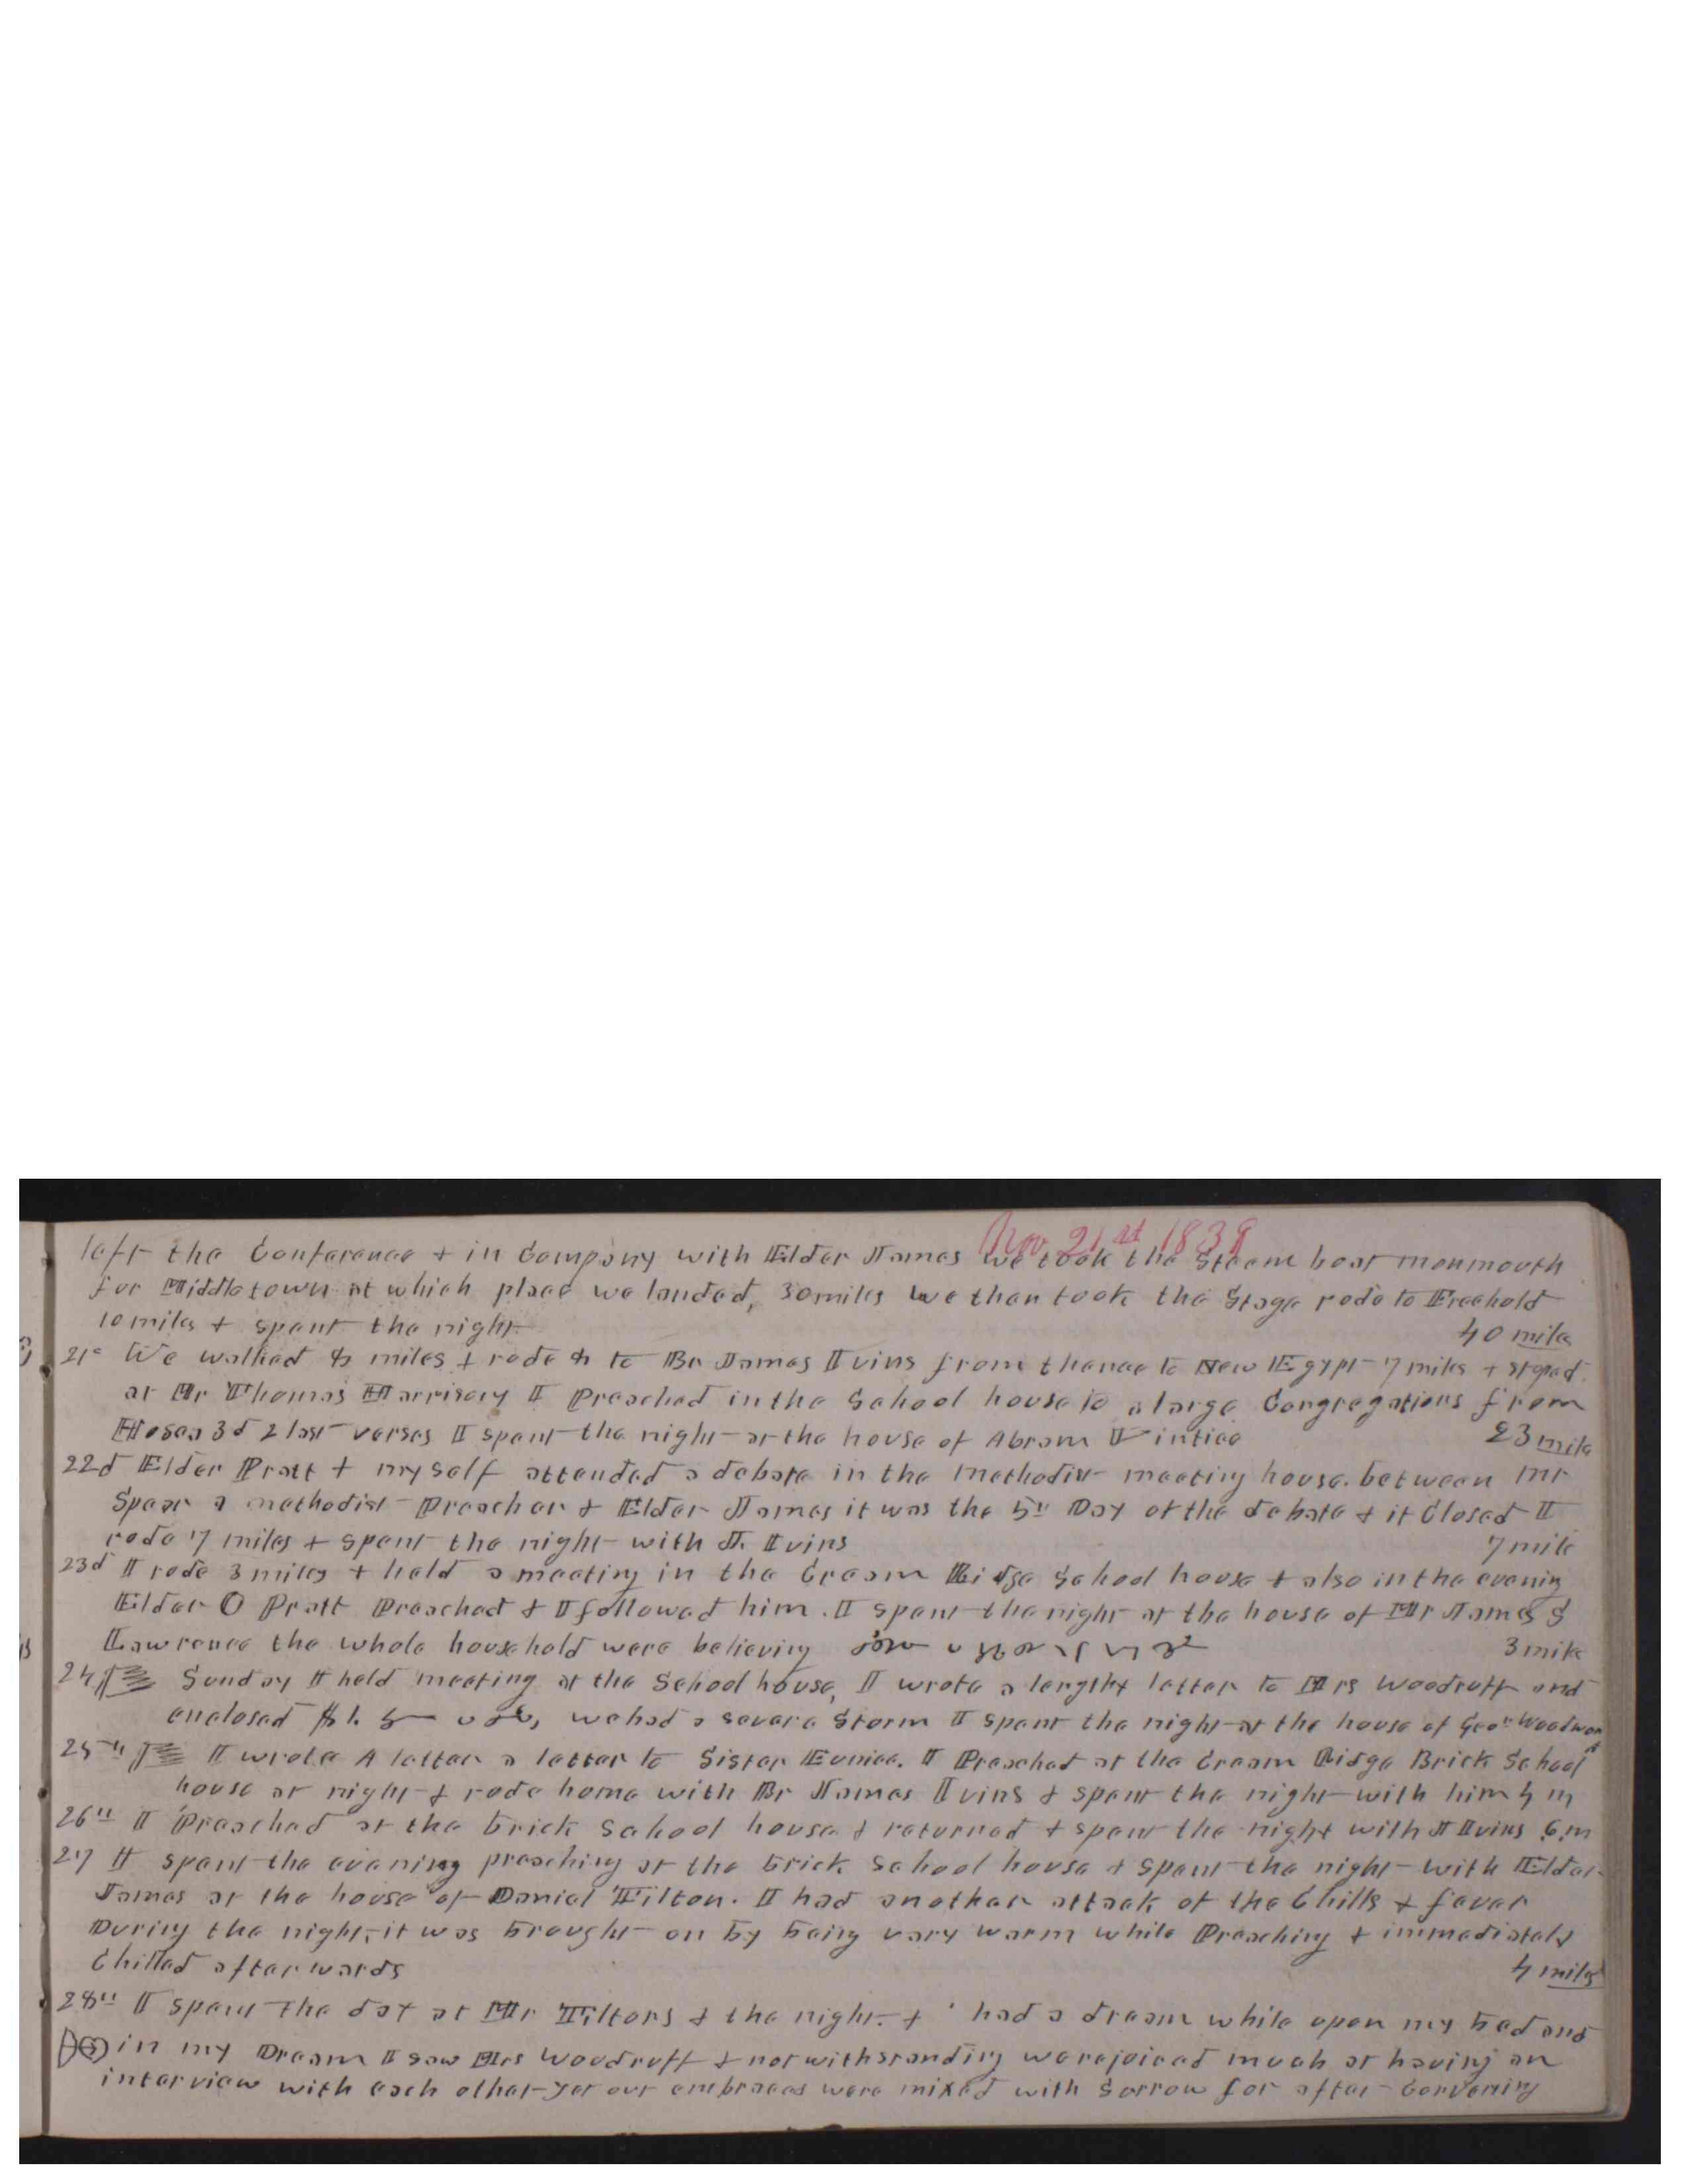 Nov 21st 1839
left the Conference & in Company with Elder James we took the Steem boat monmouth
for Middletown at which place we landed, 30 miles we then took the Stage rode to Freehold
10 miles & spent the night 40 miles
21st We walked 8 miles & rode 8 to Br James Ivins from thence to New Egypt 7 miles & stoped
at Mr Thomas Harrisons I Preached in the School house to a large Congregations from
Hosea 3d 2 last verses I spent the night at the house of Abram 23 mile
22d Elder Pratt & myself attended a debate in the methodist meeting house between mr
Spear a methodist Preacher & Elder James it was the 5th Day of the debate & it Closed I
rode 7 miles & spent the night with J. Ivins 7 mile
23d I rode 3 miles & held a meeting in the Cream Ridge School house & also in the evening
Elder O Pratt Preached & I followed him. I spent the night at the house of Mr James S
Lawrence the whole household were believing 3 mile
24 Sunday I held meeting at the School house, I wrote a lengthy letter to Mrs Woodruff and
enclosed $1. we had a severe Storm I spent the night at the house of Geo Woodward
25th I wrote A letter a letter to Sister Eunice. I Preached at the Cream Ridge Brick School
house at night & rode home with Br James Ivins & spent the night with him 4 m
26th I Preached at the brick School house & returned & spent the night with J Ivins 6 m
27 I spent the evening preaching at the brick School house & spent the night with Elder
James at the house of Daniel Tilton. I had another attack of the Chills & fever
During the night, it was brought on by being vary warm while Preaching & immediately
Chilled afterwards 4 miles
28th I spent the day at Mr Tiltons & the night. & had a dream while upon my bed and
in my Dream I saw Mrs Woodruff & notwithstanding we rejoiced much at having an
interview with each other yet our embraces were mixed with Sorrow for after Convering